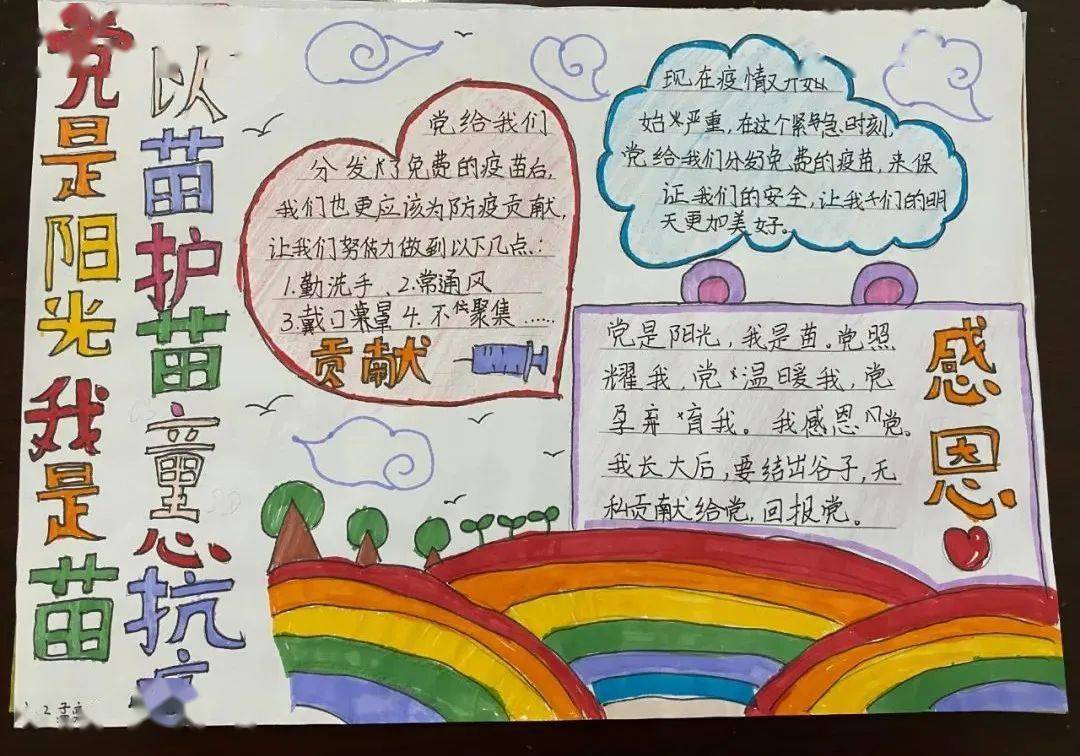 党是阳光我是苗
以苗护苗童心抗疫
党给我们
分发了免费的疫苗后,
我们也更应该为防疫贡献,
让我们努力做到以下几点:
1.勤洗手、2.常通风
3.戴口罩 4.不聚集……
贡献
现在疫情又开始
始严重,在这个紧急时刻,
党给我们分发免费的疫苗,来保
证我们的安全,让我们的明
天更加美好。
党是阳光,我是苗。党照
耀我,党温暖我,党
孕育我。我感恩党。
我长大后,要结出谷子,无
私贡献给党,回报党。
感恩